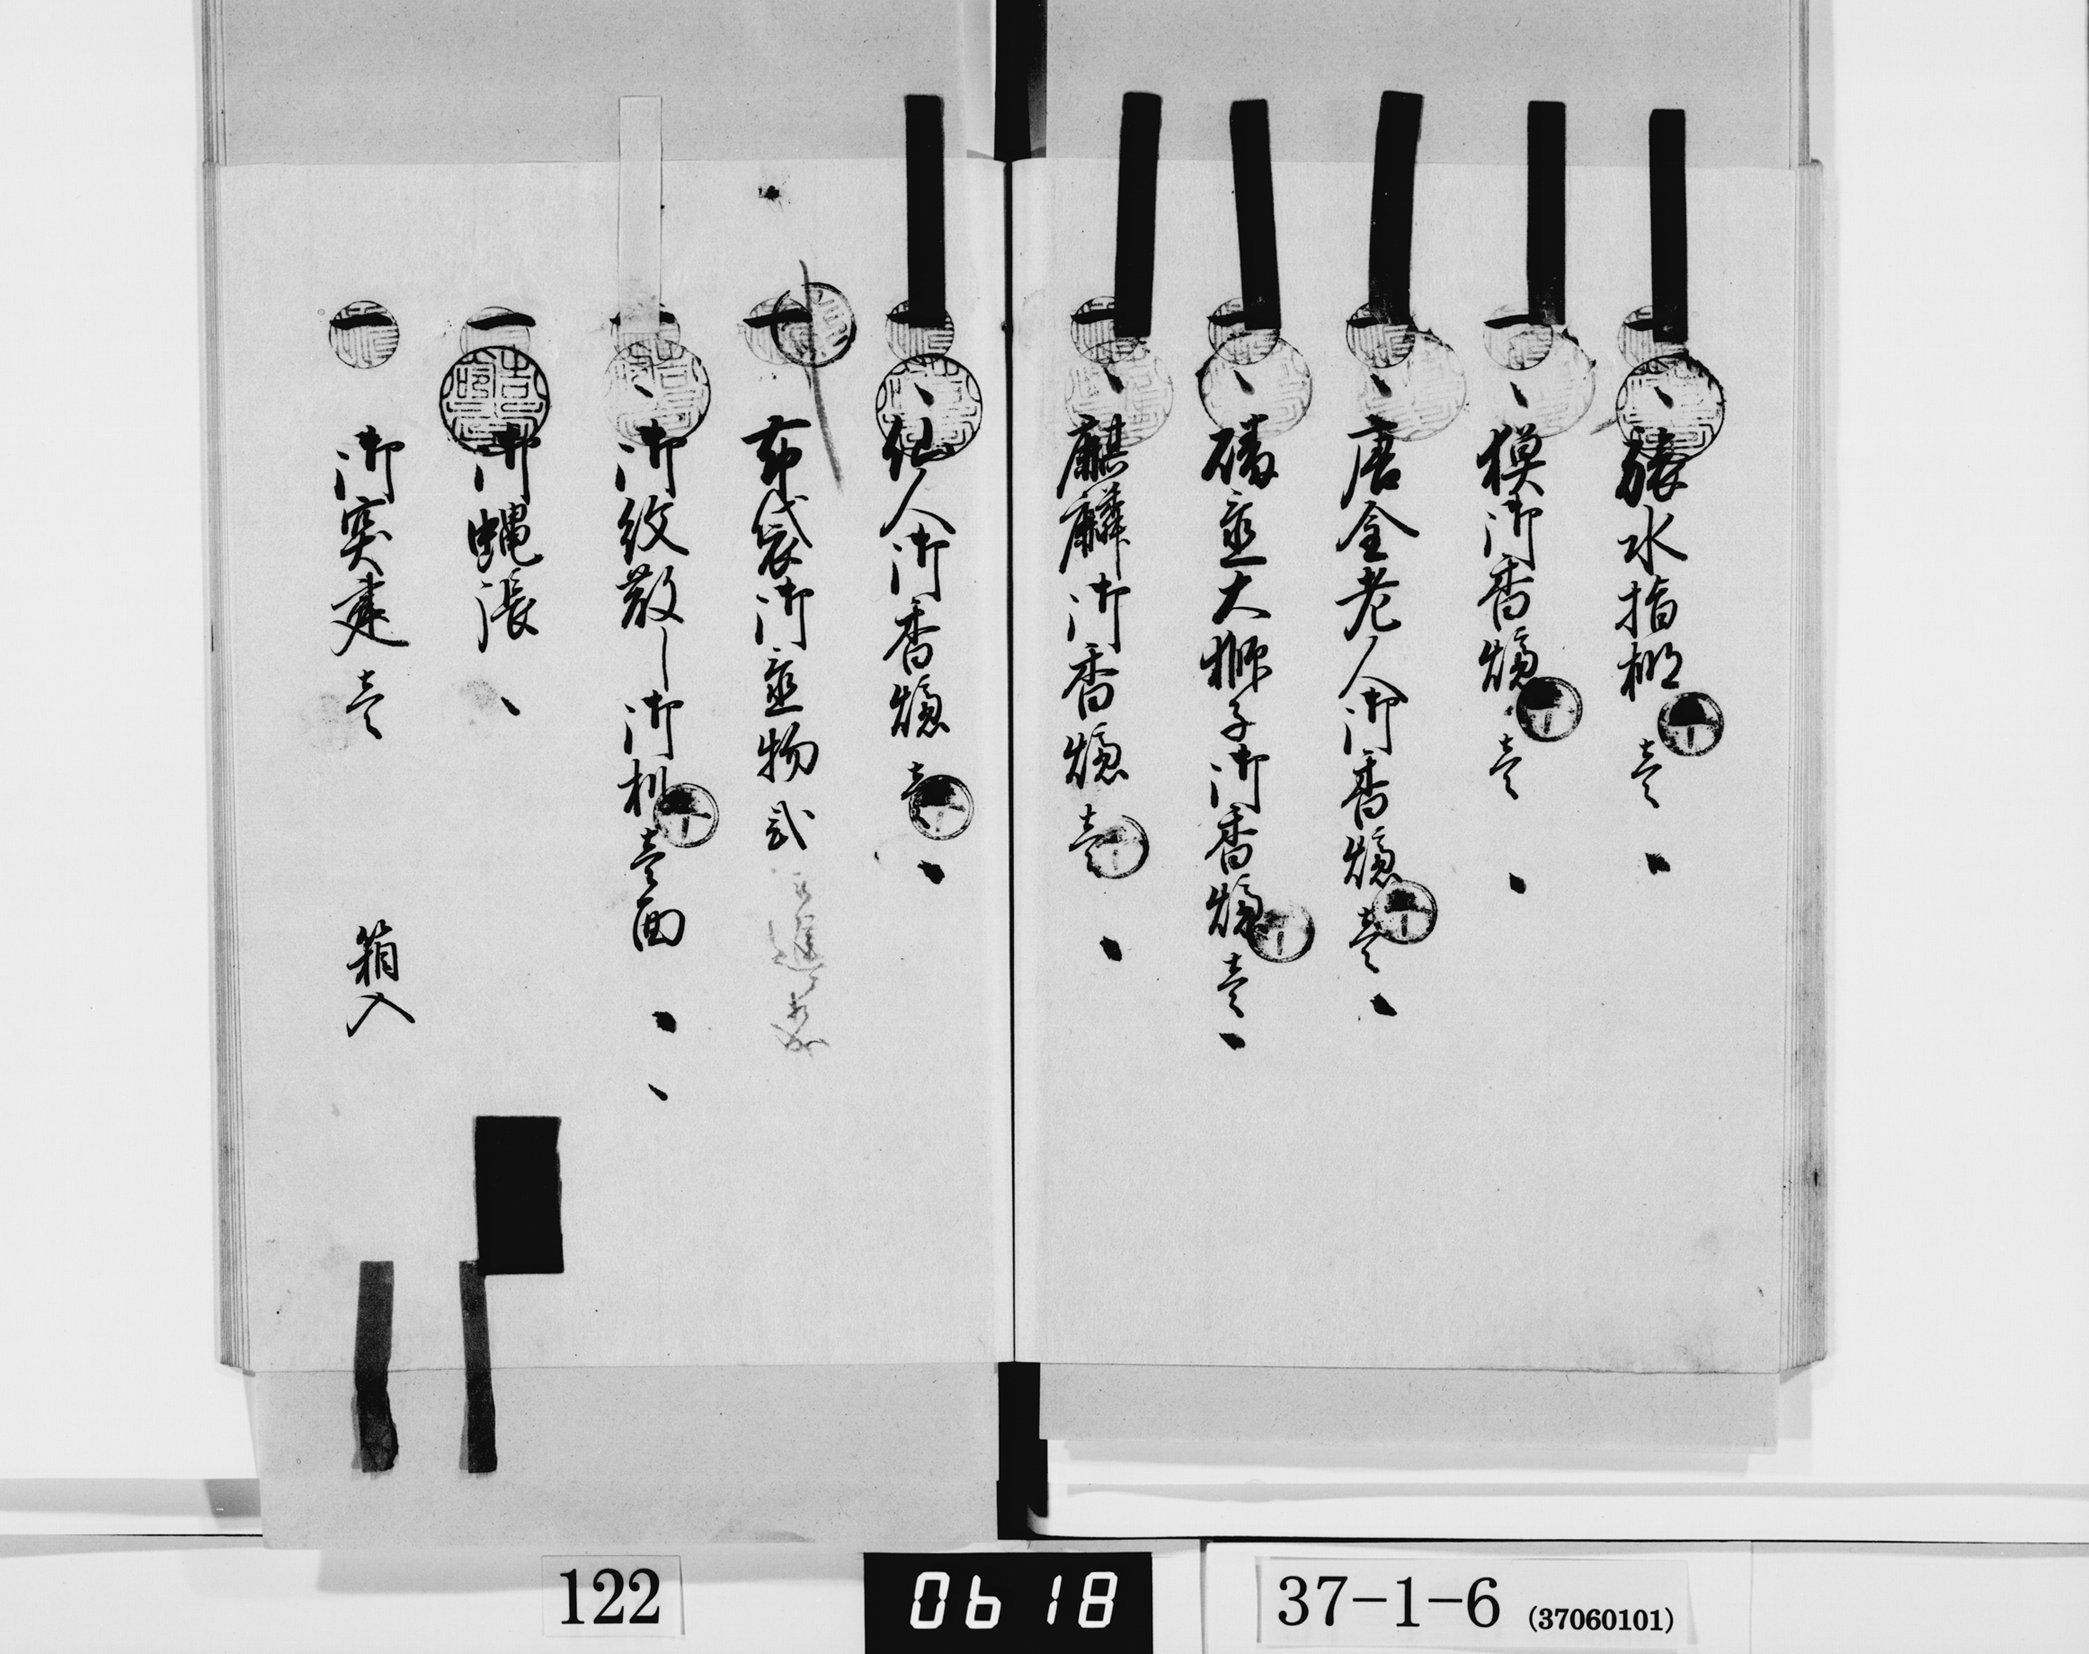 一 猿水指棚 壱
一 獏御香爐 壱
一 唐金老人御香爐 壱
一 大獅子御香爐 壱
一 麒麟御香爐 壱
一 仙人御香爐 壱
一 布袋御置物 弐
一 御紋散し御机 壱面
一 御蝿張
一 御突建 壱 箱入
122
0618
37-1-6 (37060101)